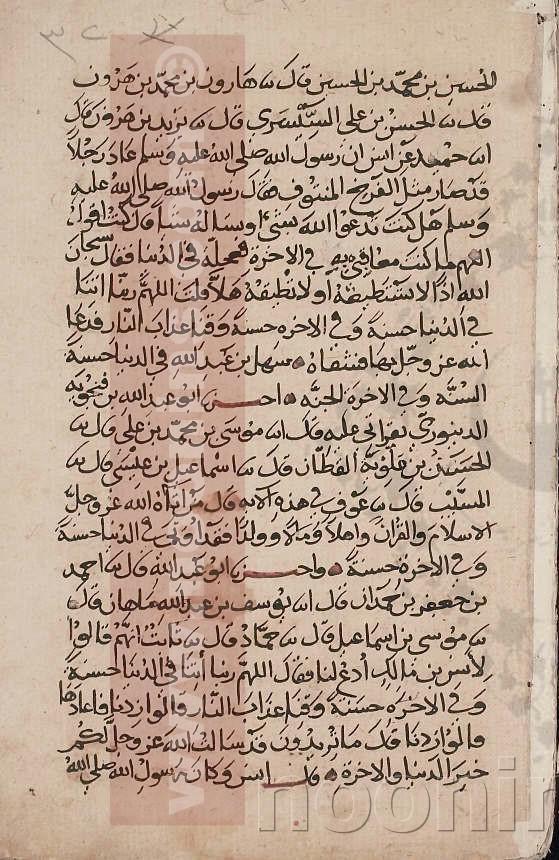 الحسين بن محمد بن الحسين قال سا هارون بن محمد بن هرون
قال سا الحسن بن على السيسرى قال سا يزيد بن هرون قال
اسا حميد عن انس ان رسول الله صلى الله عليه وسلم عاد رجلا
قد صار مثل الفرخ المنتوف فقال رسول الله صلى الله عليه
وسلم هل كنت تدعوا الله بشئ او تساله شيا قال كنت اقول
اللهم ما كنت معاقبى به فى الاخرة فعجله فى الدنيا فقال سبحان
الله اذا لا تستطيقه او لا تطيقه هلا قلت اللهم ربنا اتنا
فى الدنيا حسنة وفى الاخره حسنة وقنا عذاب النار فدعا
الله عز وجل بها فشفاه سهل بن عبد الله فى الدنيا حسنة
السنه وفى الاخرة الجنه اخبرنى ابو عبد الله بن فنجويه
الدينورى بقراتى عليه قال اسا موسى بن محمد بن على قال سا
الحسين بن علوية القطان قال سا اسماعيل بن عيسى قال سا
المسيب قال سا عوف فى هذه الايه قال من اتاه الله عز وجل
الاسلام والقران واهلا ومالا وولدا فقد اوتى فى الدنيا حسنة
وفى الاخرة حسنة واخبرنى ابو عبد الله قال سا احمد
بن جعفر بن حمدان قال اسا يوسف بن عبد الله ماهان قال
سا موسى بن اسماعيل قال سا حماد قال سا ثابت انهم قالوا
لأنس بن مالك أدع لنا فقال اللهم ربنا أتنا فى الدنيا حسنة
وفى الاخرة حسنة وقنا عذاب النار قالوا زدنا فاعادها
قالوا زدنا قال ما تريدون قد سالت الله عز وجل لكم
خير الدنيا والاخرة قال انس وكان رسول الله صلى الله
noorlr